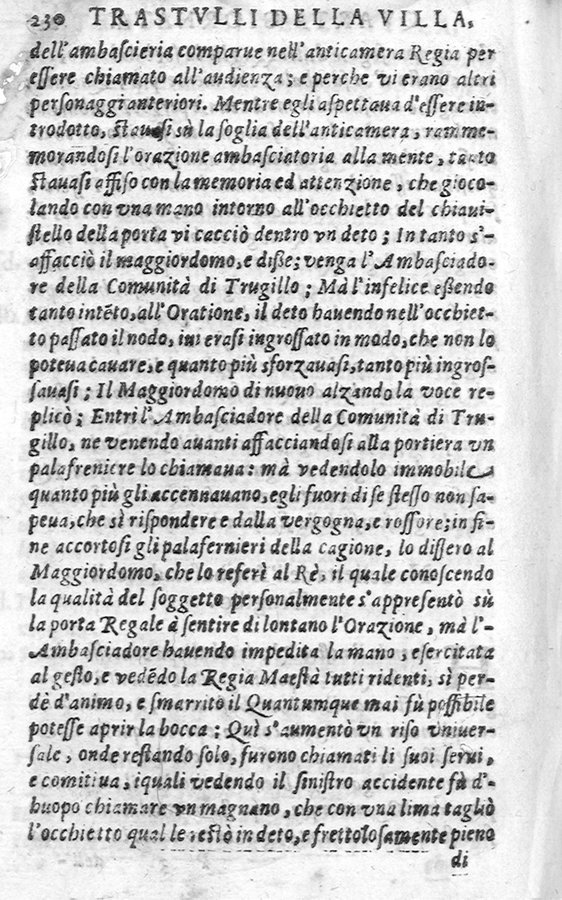 230 TRASTVLLI DELLA VILLA,
dell'ambascieria comparue nell'anticamera Regia per
essere chiamato all'audienza; e perche vi erano altri
personaggi anteriori. Mentre egli aspettaua d'essere in-
trodotto, stauasi sù la soglia dell'anticamera, ramme-
morandosi l'orazione ambasciatoria alla mente, tanto
stauasi affiso con la memoria ed attenzione, che gioco-
lando con vna mano intorno all'occhietto del chiaui-
stello della porta vi cacciò dentro vn deto; In tanto s'-
affacciò il maggiordomo, e disse; venga l'Ambasciado-
re della Comunità di Trugillo; Mà l'infelice essendo
tanto intēto, all'Oratione, il deto hauendo nell'occhiet-
to passato il nodo, iui erasi ingrossato in modo, che non lo
poteua cauare, e quanto più sforzauasi, tanto più ingros-
sauasi; Il Maggiordomo di nuouo alzando la voce re-
plicò; Entri l'Ambasciadore della Comunità di Tru-
gillo, ne venendo auanti affacciandosi alla portiera vn
palafreniere lo chiamaua: mà vedendolo immobile
quanto più gli accennauano, egli fuori di se stesso non sa-
peua, che sì rispondere e dalla vergogna, e rossore; in fi-
ne accortosi gli palafernieri della cagione, lo dissero al
Maggiordomo, che lo referì al Rè, il quale conoscendo
la qualità del soggetto personalmente s'appresentò sù
la porta Regale à sentire di lontano l'Orazione, mà l'-
Ambasciadore hauendo impedita la mano, esercitata
al gesto, e vedēdo la Regia Maestà tutti ridenti, sì per-
dè d'animo, e smarrito il Quantumque mai fù possibile
potesse aprir la bocca; Quì s'aumentò vn riso vniuer-
sale, onde restando solo, furono chiamati li suoi serui,
e comitiua, iquali vedendo il sinistro accidente fù d'-
huopo chiamare vn magnano, che con vna lima tagliò
l'occhietto qual le restò in deto, e frettolosamente pieno
di